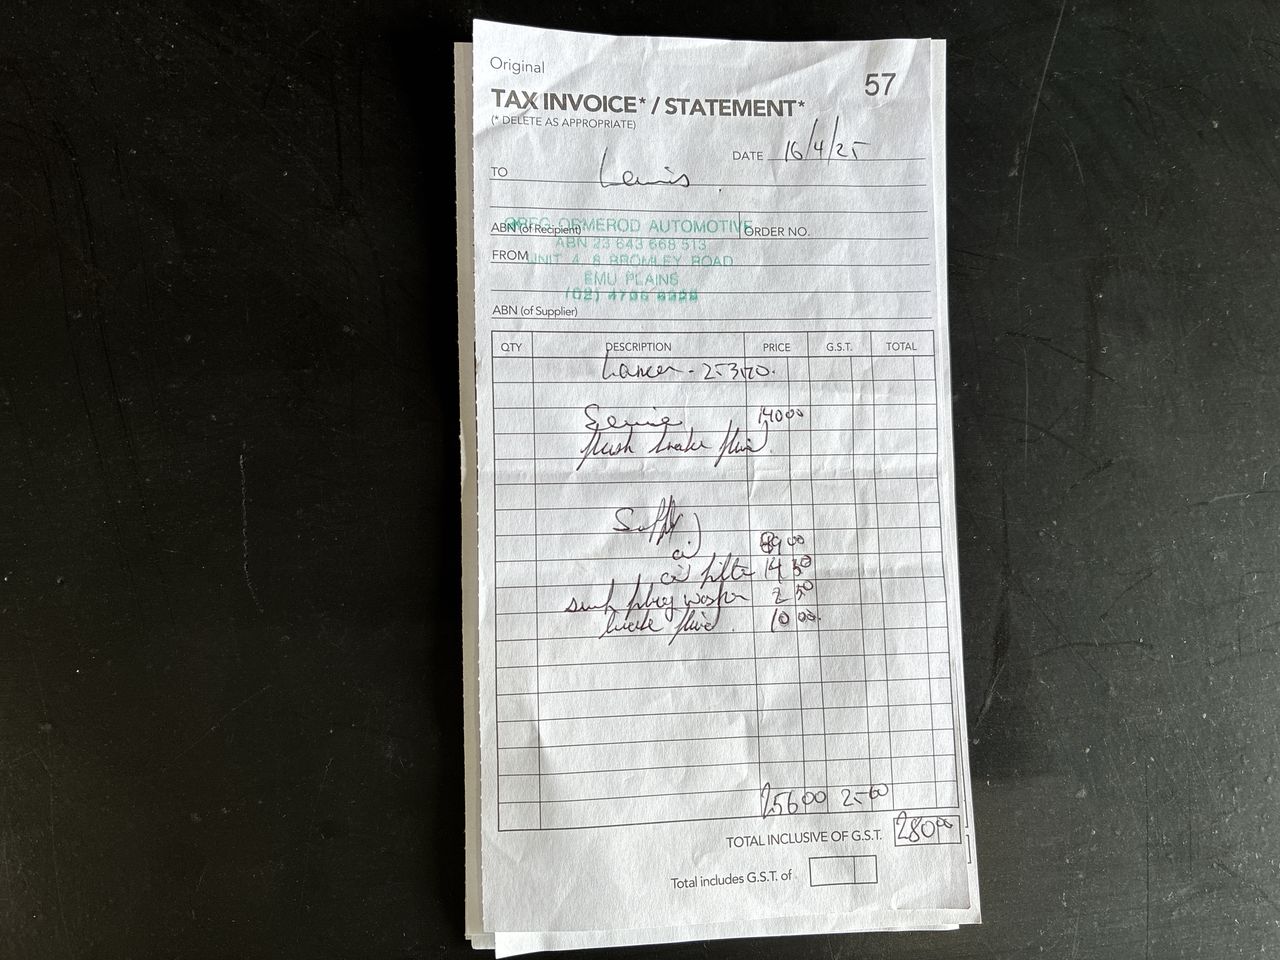 Original
57
TAX INVOICE* / STATEMENT*
(* DELETE AS APPROPRIATE)
DATE 16/4/25
TO Lewis
GREG ORMEROD AUTOMOTIVE
ABN (of Recipient) ORDER NO.
ABN 23 643 668 513
FROM UNIT 4, 8 BROMLEY ROAD
EMU PLAINS
(02) 4735
ABN (of Supplier)
QTY DESCRIPTION PRICE G.S.T. TOTAL
Lancer -
Service 140 00
flush brake fluid.
Supply
oil 89 00
oil filter 14 50
sump plug washer 2 50
brake fluid. 10 00.
256 00 25 60
TOTAL INCLUSIVE OF G.S.T. 280 00
Total includes G.S.T. of